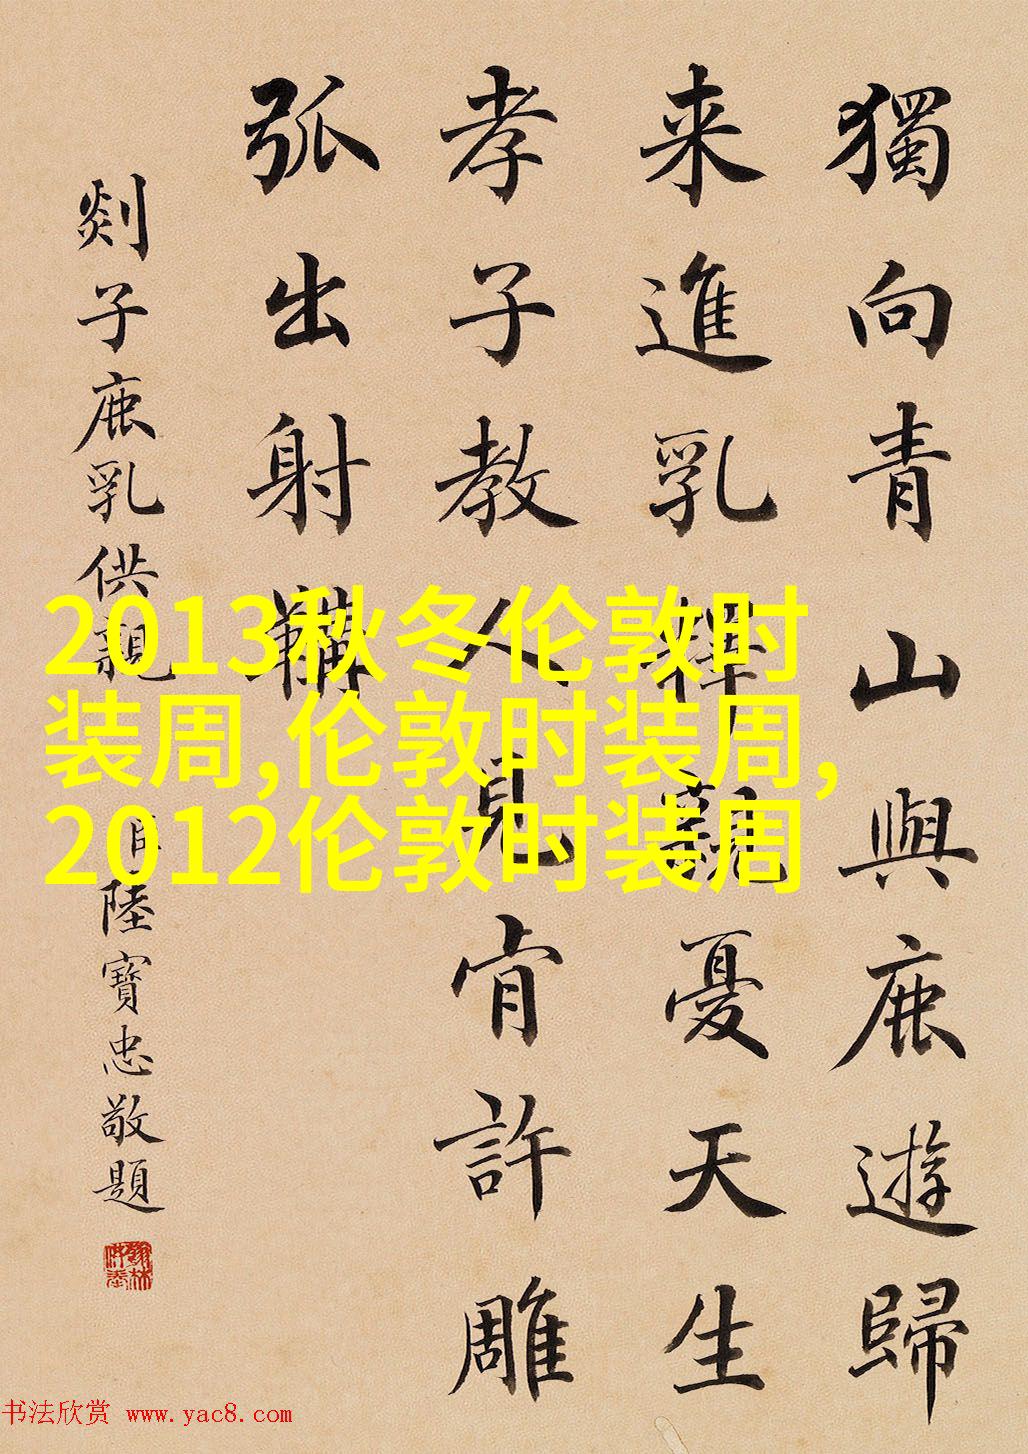 獨向青山與鹿遊歸
来進乳親憂天生
孝子教人見肯許雕
弧出射鞲
剡子鹿乳供親
陸寶忠敬題
2013秋冬伦敦时
装周,伦敦时装周,
2012伦敦时装周
书法欣赏 www.yac8.com